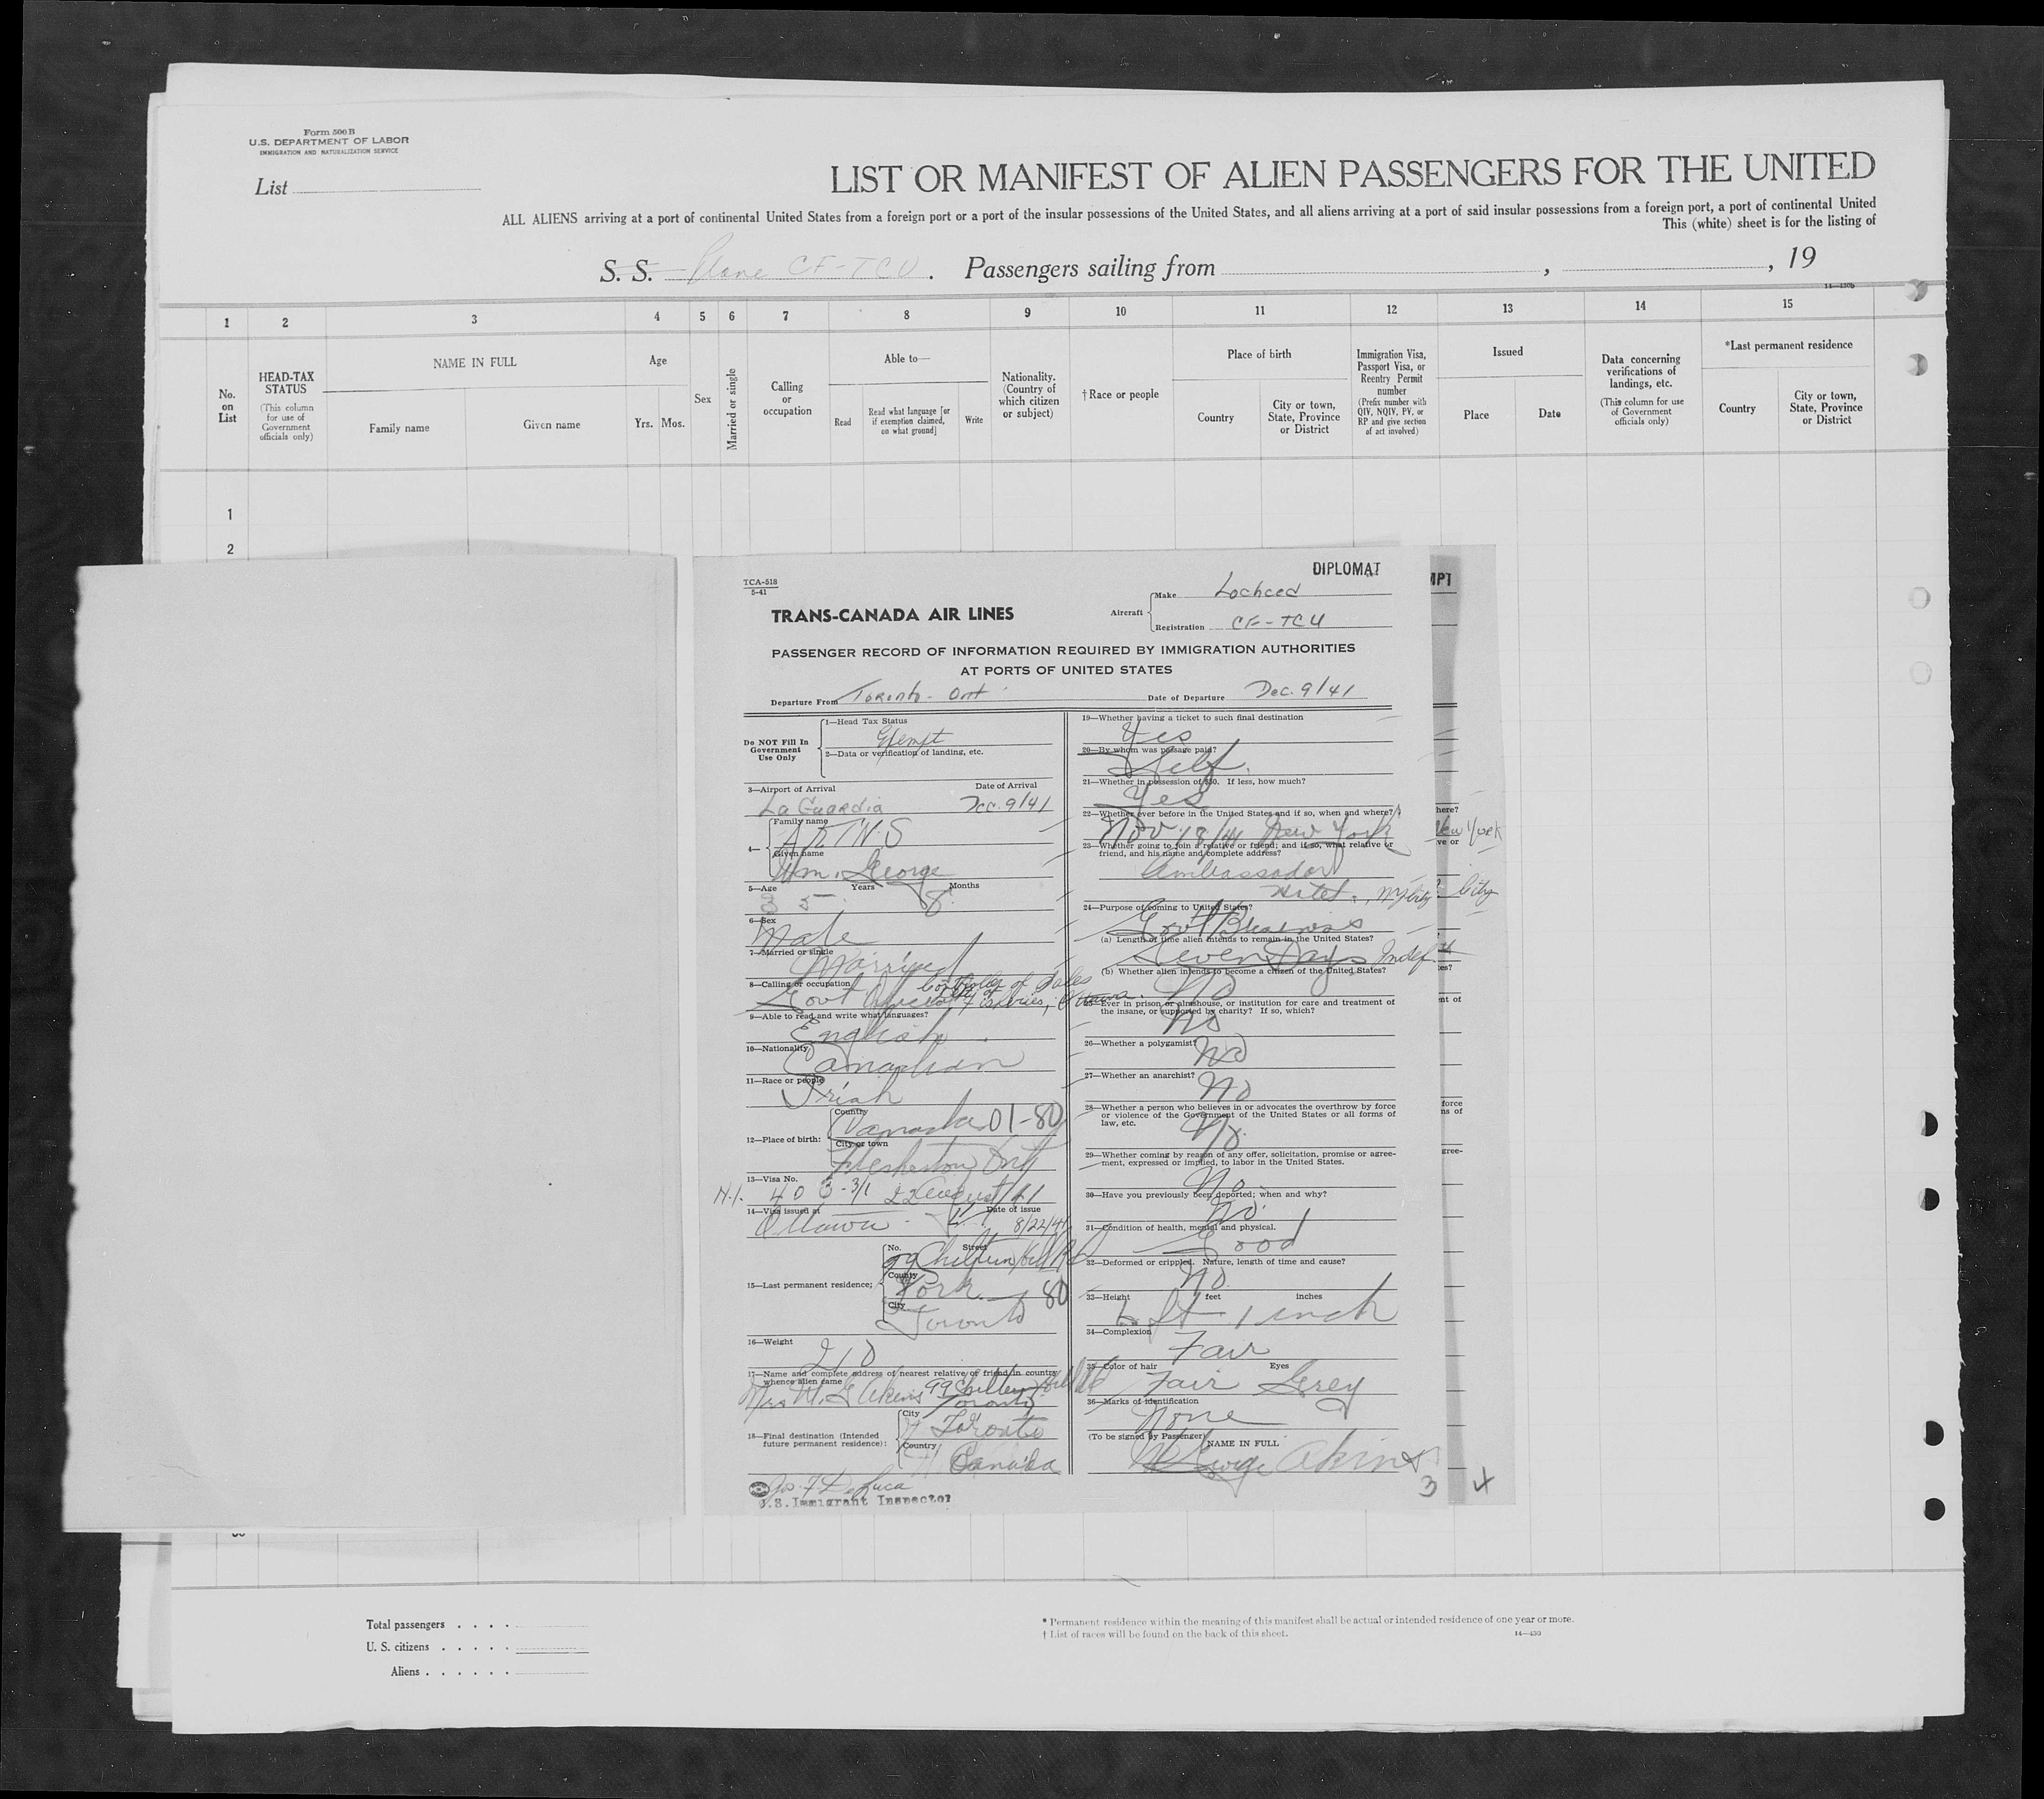 Form 500 B
U.S. DEPARTMENT OF LABOR
IMMIGRATION AND NATURALIZATION SERVICE
List
LIST OR MANIFEST OF ALIEN PASSENGERS FOR THE UNITED
ALL ALIENS arriving at a port of continental United States from a foreign port or a port of the insular possessions of the United States, and all aliens arriving at a port of said insular possessions from a foreign port, a port of continental United
This (white) sheet is for the listing of
S. S. Plane CF-TCU. Passengers sailing from , , 19
1 2 3 4 5 6 7 8 9 10 11 12 13 14 15
No. on List
HEAD-TAX STATUS
(This column for use of Government officials only)
NAME IN FULL
Family name
Given name
Age
Yrs. Mos.
Sex
Married or single
Calling or occupation
Able to—
Read
Read what language [or if exemption claimed, on what ground]
Write
Nationality. (Country of which citizen or subject)
† Race or people
Place of birth
Country
City or town, State, Province or District
Immigration Visa, Passport Visa, or Reentry Permit number
(Prefix number with QIV, NQIV, PV, or RP and give section of act involved)
Issued
Place
Date
Data concerning verifications of landings, etc.
(This column for use of Government officials only)
*Last permanent residence
Country
City or town, State, Province or District
1
2
DIPLOMAT
TCA-518
5-41
TRANS-CANADA AIR LINES
Aircraft
Make Locheed
Registration CF-TCU
PASSENGER RECORD OF INFORMATION REQUIRED BY IMMIGRATION AUTHORITIES
AT PORTS OF UNITED STATES
Departure From Toronto - Ont Date of Departure Dec. 9/41
Do NOT Fill In Government Use Only
1—Head Tax Status
Exempt
2—Data or verification of landing, etc.
3—Airport of Arrival Date of Arrival
La Guardia Dec. 9/41
4— Family name
AKINS
Given name
Wm. George
5—Age Years Months
5 8
6—Sex
Male
7—Married or single
Married
8—Calling or occupation
Controller of Sales
Govt
9—Able to read and write what languages?
English
10—Nationality
Canadian
11—Race or people
Irish
12—Place of birth:
Country
Canada 01-80
City or town
Flesherton Ont
13—Visa No.
403-3/1 22 August/41
14—Visa issued at Date of issue
Ottawa 8/22/41
15—Last permanent residence;
No. Street
99 Chiltern Hill Rd
County
York 80
City
Toronto
16—Weight
210
17—Name and complete address of nearest relative or friend in country whence alien came
Mrs W. G. Akins 99 Chiltern Hill Rd
Toronto
18—Final destination (Intended future permanent residence):
City
Toronto
Country
Canada
U.S. Immigrant Inspector
19—Whether having a ticket to such final destination
Yes
20—By whom was passage paid?
Self.
21—Whether in possession of $50. If less, how much?
Yes
22—Whether ever before in the United States and if so, when and where?
Nov 18/41 New York
23—Whether going to join a relative or friend; and if so, what relative or friend, and his name and complete address?
Ambassador
Hotel, NY City
24—Purpose of coming to United States?
Govt Business
(a) Length of time alien intends to remain in the United States?
Seven Days Indef.
(b) Whether alien intends to become a citizen of the United States?
No
25—Ever in prison or almshouse, or institution for care and treatment of the insane, or supported by charity? If so, which?
No
26—Whether a polygamist?
No
27—Whether an anarchist?
No
28—Whether a person who believes in or advocates the overthrow by force or violence of the Government of the United States or all forms of law, etc.
No.
29—Whether coming by reason of any offer, solicitation, promise or agreement, expressed or implied, to labor in the United States.
No.
30—Have you previously been deported; when and why?
No.
31—Condition of health, mental and physical.
Good
32—Deformed or crippled. Nature, length of time and cause?
No.
33—Height feet inches
6 ft - 1 inch
34—Complexion
Fair
35—Color of hair Eyes
Fair Grey
36—Marks of identification
None
(To be signed by Passenger) NAME IN FULL
W George Akins
3 4
Total passengers . . . .
U. S. citizens . . . . .
Aliens . . . . . .
* Permanent residence within the meaning of this manifest shall be actual or intended residence of one year or more.
† List of races will be found on the back of this sheet.
14—430